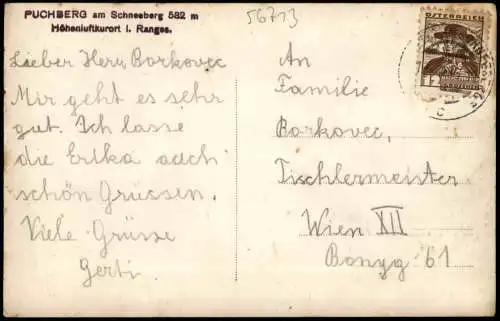 PUCHBERG am Schneeberg 582 m
Höhenluftkurort I. Ranges.
56713
ÖSTERREICH
12
Lieber Herr Borkovec
Mir geht es sehr
gut. Ich lasse
die Erika auch
schön Grüssen.
Viele Grüsse
Gerti.
An
Familie
Borkovec,
Tischlermeister
Wien XII
61